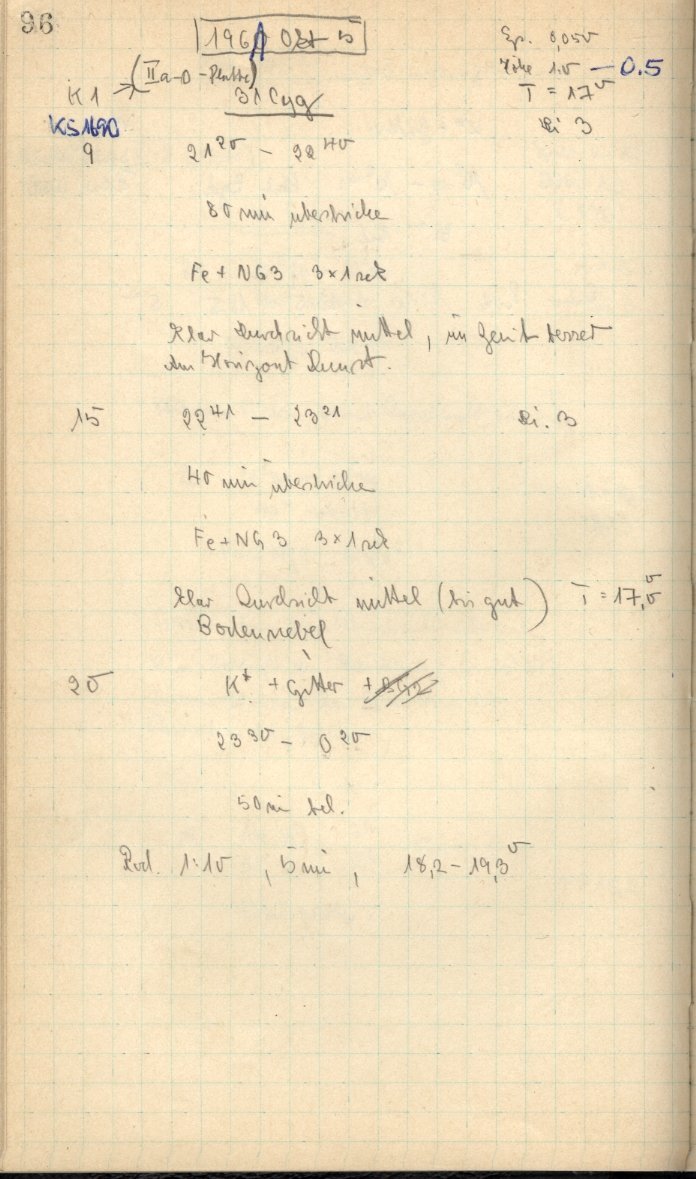 96
1961 Okt 5
Sp. 0,050
Höhe 1.0 — 0.5
(IIa-O - Platte)
K1
31 Cyg
T = 17°
KS1690
Lu 3
9 21 20 - 22 40
80 min überstriche
Fe + NG3 3×1 sek
klar Durchsicht mittel, im Zenit besser
Am Horizont Dunst.
15 22 41 - 23 21 3
40 min überstriche
Fe + NG3 3×1 sek
klar Durchsicht mittel (bis gut) T = 17,0°
Bodennebel
20 K* + Gitter +
23 30 - 0 20
50 min bel.
Rod. 1:10, 5 min, 18,2 - 19,3°